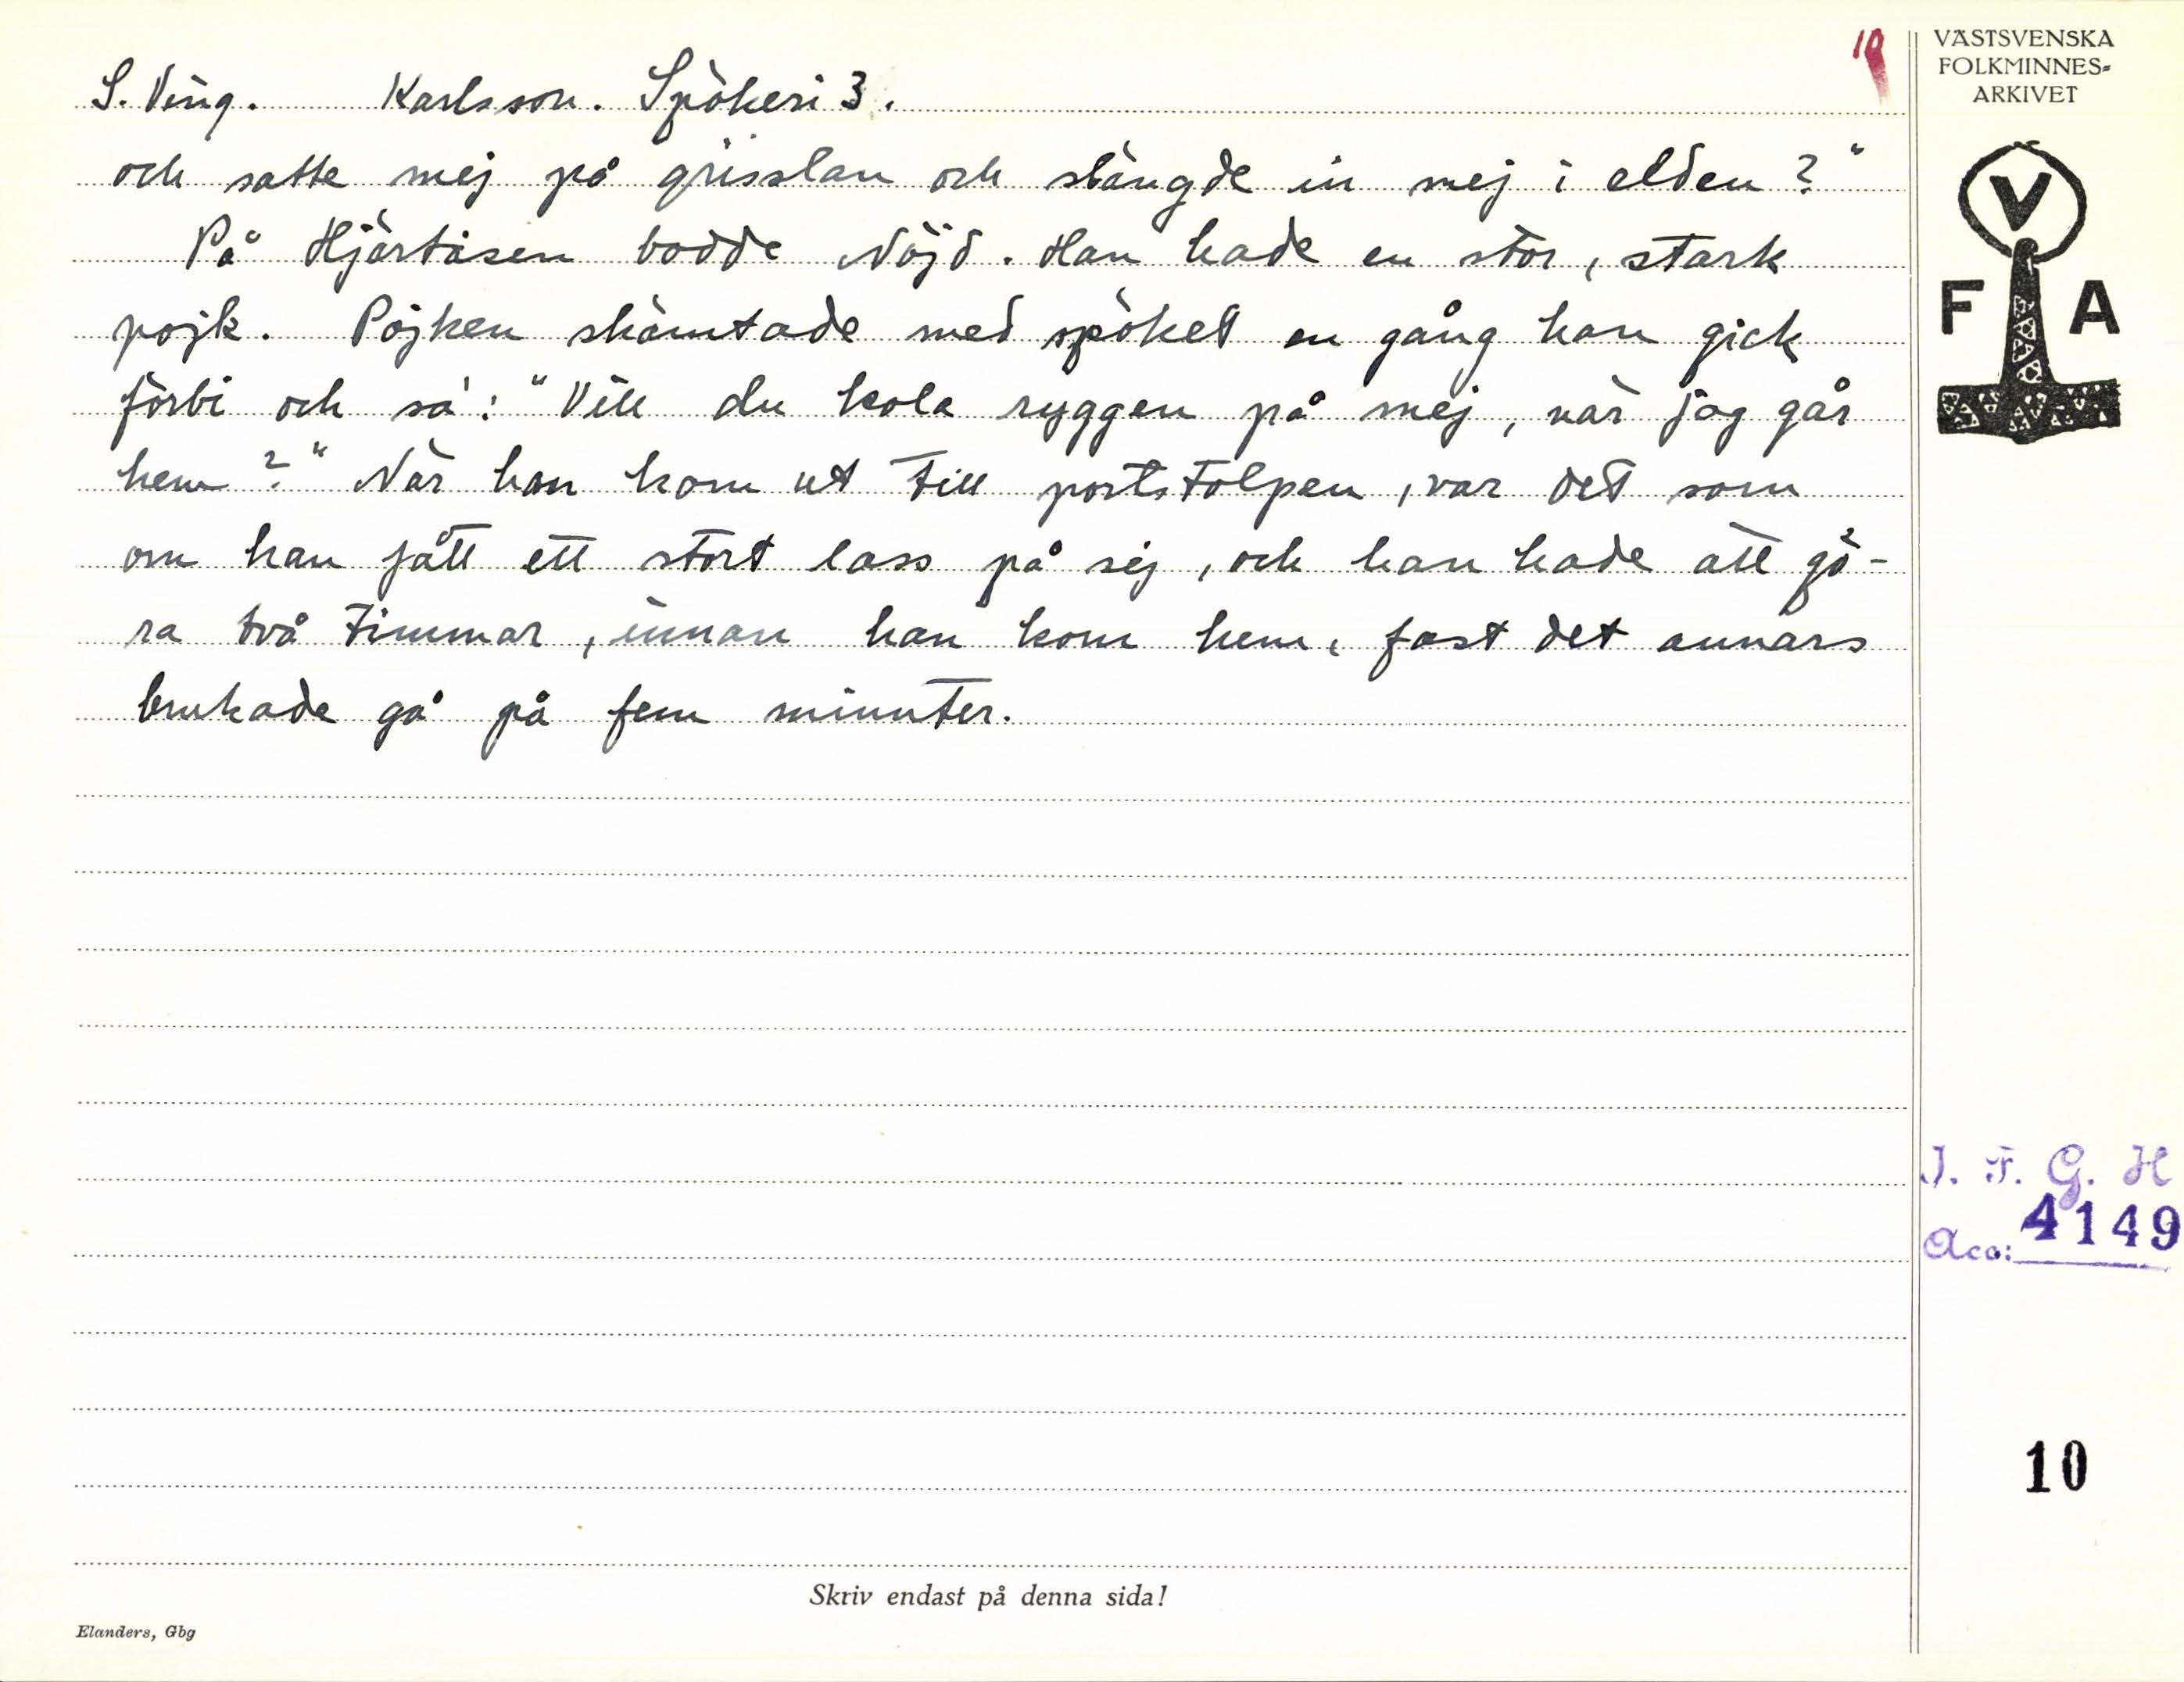 S. Ving. Karlsson. Spökeri 3.
10
och satte mej på grisslan och slängde in mej i elden?"
På Hjärtåsen bodde Nöjd. Han hade en stor, stark
pojk. Pojken skämtade med spöket en gång han gick
förbi och sa': "Vill du kola ryggen på mej, när jag går
hem?" När han kom ut till portstolpen, var det som
om han fått ett stort lass på sej, och han hade att gö-
ra två timmar, innan han kom hem, fast det annars
brukade gå på fem minuter.
VÄSTSVENSKA
FOLKMINNES-
ARKIVET
V
F A
I. F. G. H
Acc: 4149
10
Skriv endast på denna sida!
Elanders, Gbg